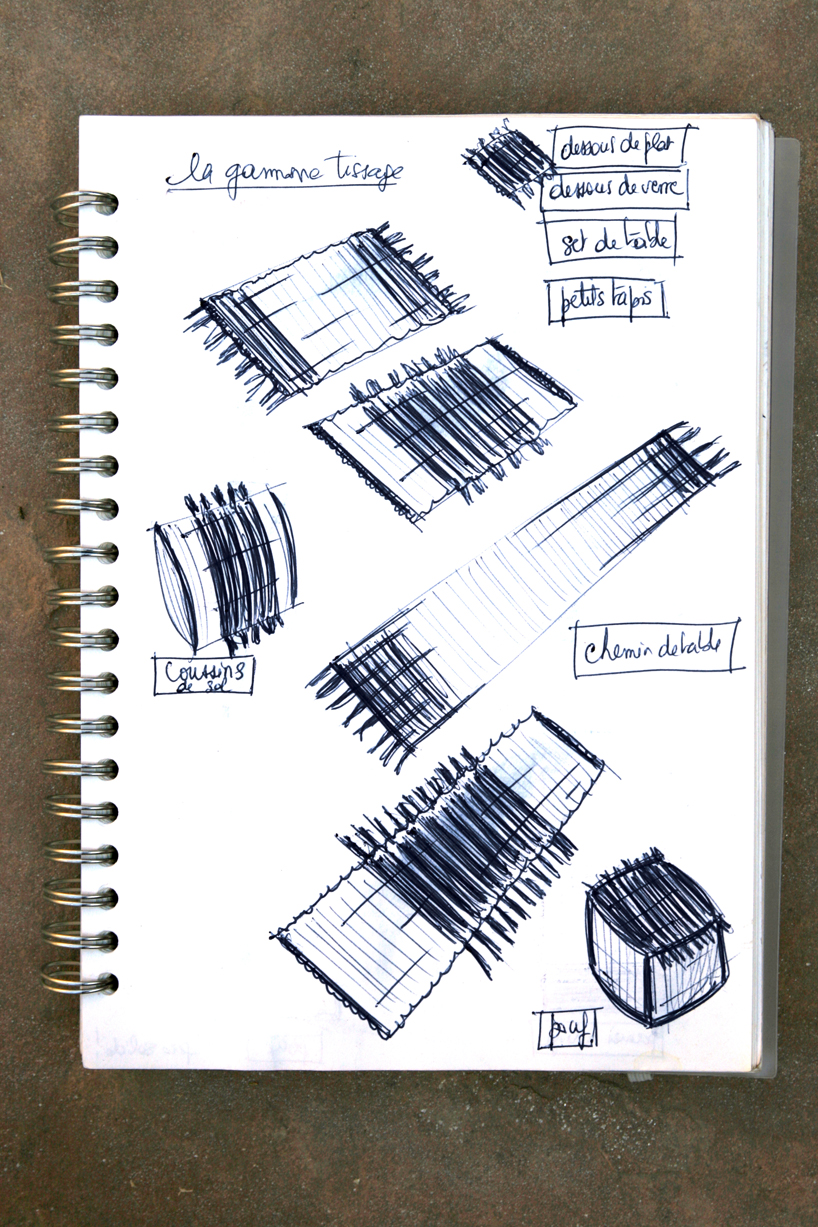 la gamme tissage
dessous de plat
dessous de verre
set de table
petits tapis
coussins
de sol
chemin de table
pouf